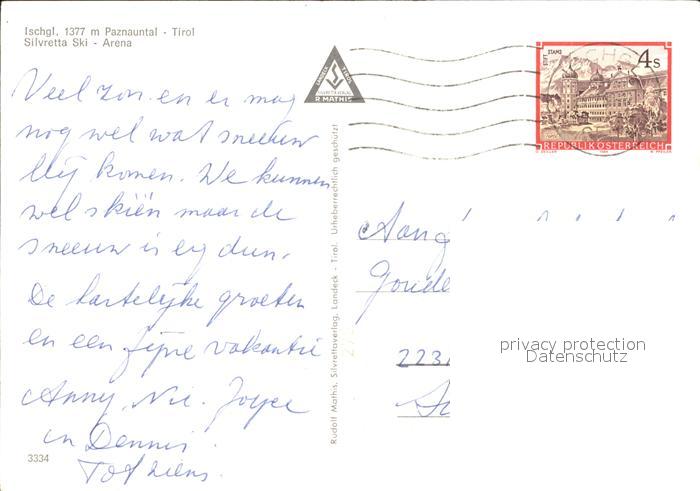 Ischgl, 1377 m Paznauntal - Tirol
Silvretta Ski - Arena
Veel zon en er mag
nog wel wat sneeuw
bij komen. We kunnen
wel skiën maar de
sneeuw is erg dun.
De hartelijke groeten
en een fijne vakantie
Anny, Nic. Joyce
en Dennis.
Tot ziens.
3334
SILVRETTA VERLAG
R. MATHIS
Rudolf Mathis, Silvrettaverlag, Landeck - Tirol. Urheberrechtlich geschützt!
STIFT STAMS
4 S
REPUBLIK ÖSTERREICH
Aan
Goude
223
privacy protection
Datenschutz